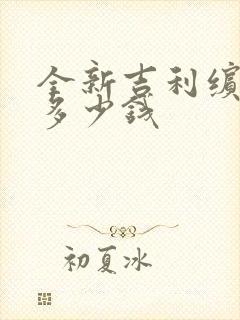 全新吉利缤
多少钱
初夏冰